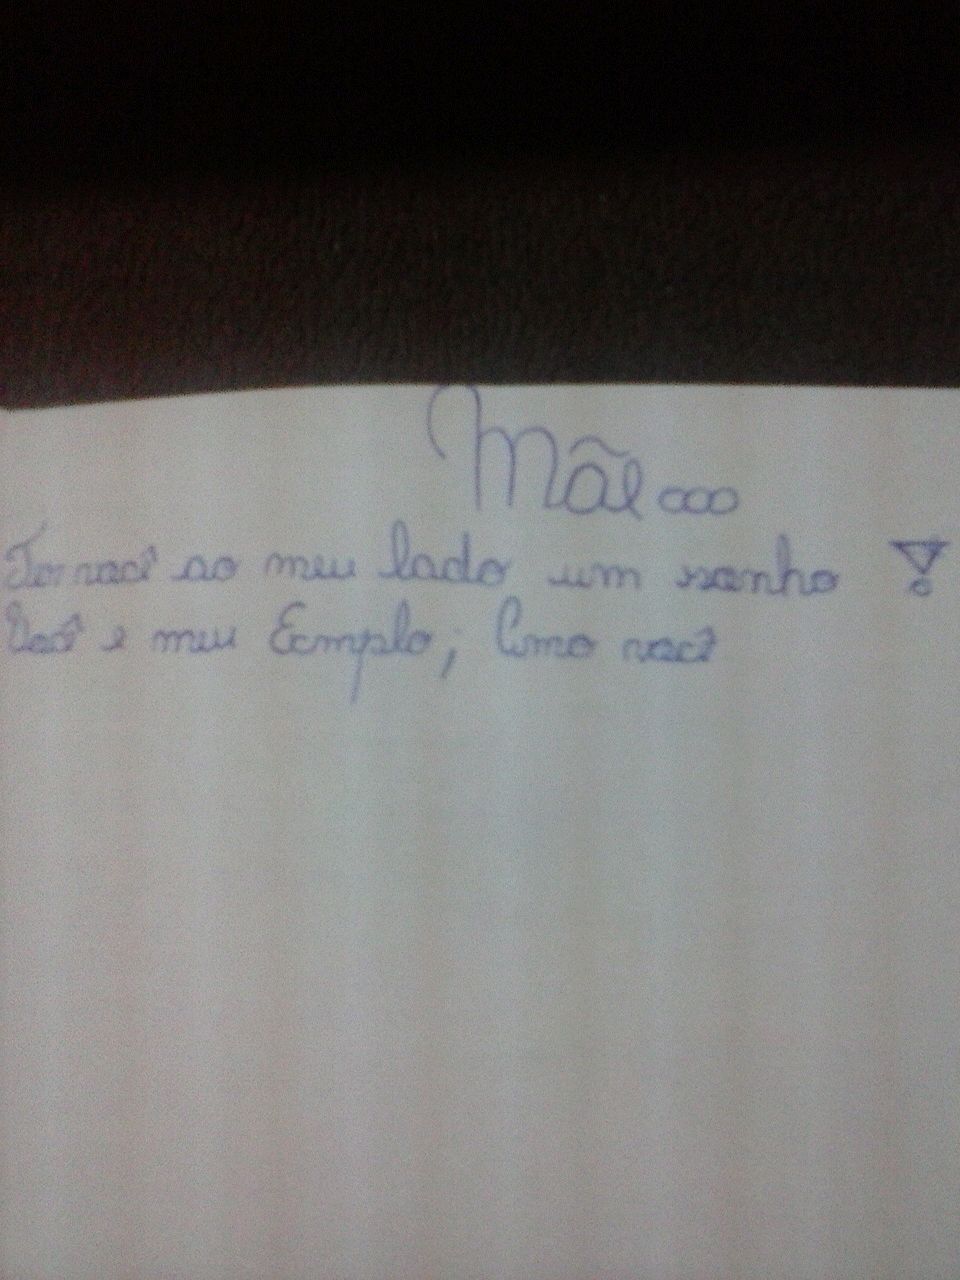 Mãe...
Ter você ao meu lado um sonho !
Você e meu Exmplo; Amo você